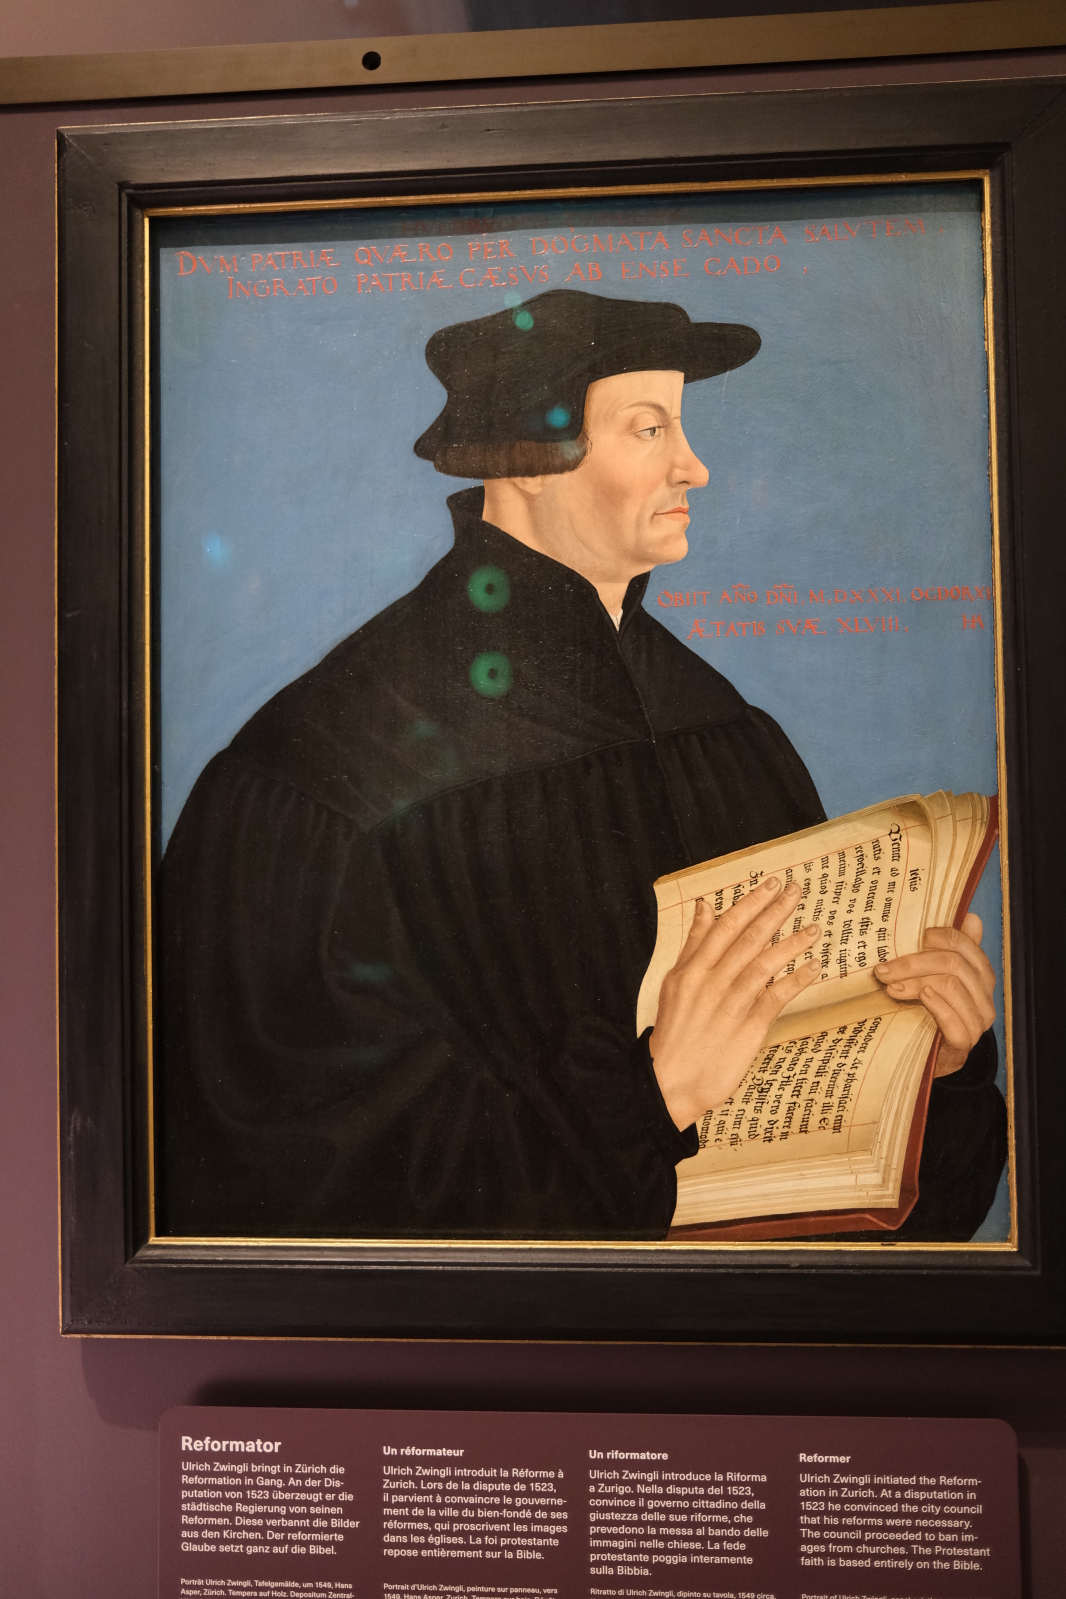 DVM PATRIÆ QVÆRO PER DOGMATA SANCTA SALVTEM
INGRATO PATRIÆ CÆSVS AB ENSE CADO
OBIIT AÑO DÑI. M.D.XXXI. OCDORXI
ÆTATIS SVÆ XLVIII. HA
jesus
Venite ad me omnes qui labo
ratis et onerati estis et ego
refocillabo vos tollite iugum
meum super vos et discite a
me quod mitis
lis corde et
In
vero
pharisaei cum
vidissent dixerunt illi Ecce
discipuli tui faciunt
quod non licet facere in
sabbato Ille vero dixit
eis non legistis quid
fecerit David cum esu
quomodo
Reformator
Ulrich Zwingli bringt in Zürich die
Reformation in Gang. An der Dis-
putation von 1523 überzeugt er die
städtische Regierung von seinen
Reformen. Diese verbannt die Bilder
aus den Kirchen. Der reformierte
Glaube setzt ganz auf die Bibel.
Porträt Ulrich Zwingli, Tafelgemälde, um 1549, Hans
Asper, Zürich. Tempera auf Holz. Depositum Zentral-
Un réformateur
Ulrich Zwingli introduit la Réforme à
Zurich. Lors de la dispute de 1523,
il parvient à convaincre le gouverne-
ment de la ville du bien-fondé de ses
réformes, qui proscrivent les images
dans les églises. La foi protestante
repose entièrement sur la Bible.
Portrait d'Ulrich Zwingli, peinture sur panneau, vers
1549, Hans Asper, Zurich. Tempera sur bois.
Un riformatore
Ulrich Zwingli introduce la Riforma
a Zurigo. Nella disputa del 1523,
convince il governo cittadino della
giustezza delle sue riforme, che
prevedono la messa al bando delle
immagini nelle chiese. La fede
protestante poggia interamente
sulla Bibbia.
Ritratto di Ulrich Zwingli, dipinto su tavola, 1549 circa,
Reformer
Ulrich Zwingli initiated the Reform-
ation in Zurich. At a disputation in
1523 he convinced the city council
that his reforms were necessary.
The council proceeded to ban im-
ages from churches. The Protestant
faith is based entirely on the Bible.
Portrait of Ulrich Zwingli,